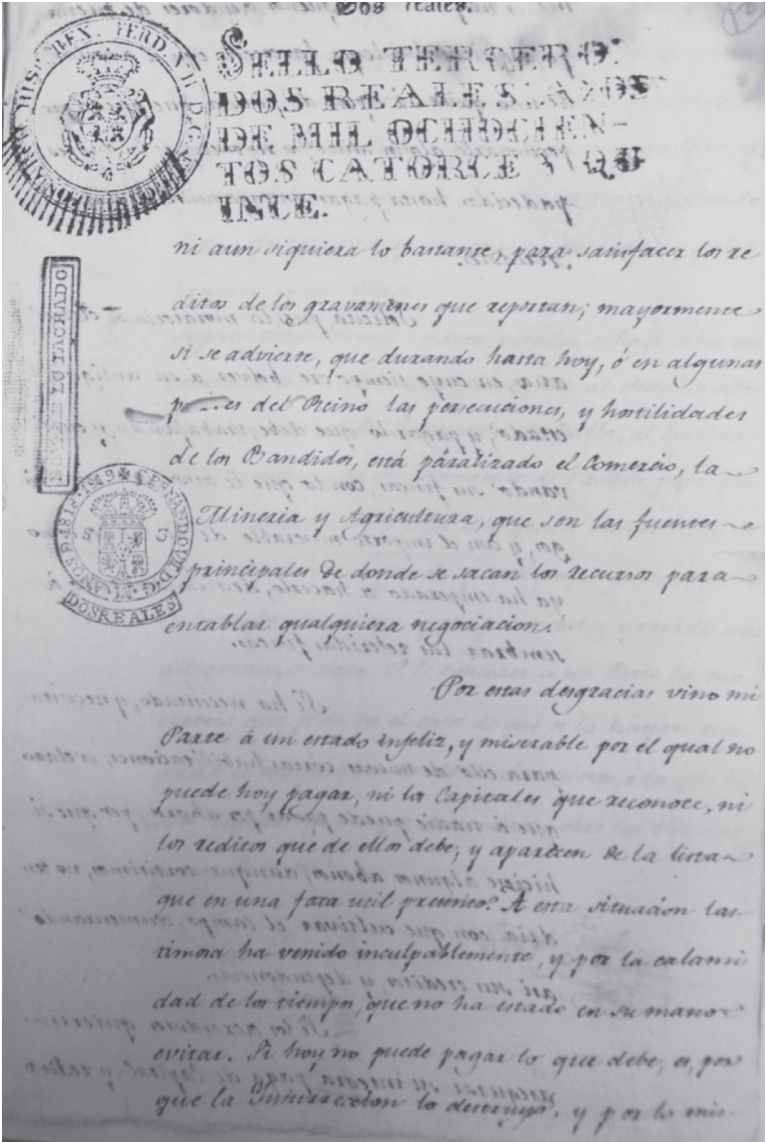 Dos reales.
HISP. REX. FERD. VII. D. G.
SELLO TERCERO:
DOS REALES: AÑOS
DE MIL OCHOCIEN-
TOS CATORCE Y QU
INCE.
ni aun siquiera lo bastante, para satisfacer los re
ditos de los gravamenes que reportan; mayormente
si se advierte, que durando hasta hoy, ó en algunas
del Reino las persecuciones, y hostilidades
de los Bandidos, está páralizado el Comercio, la
Mineria y Agricultura, que son las fuentes
principales de donde se sacan los recursos para
entablar qualquiera negociacion.
Por estas desgracias vino mi
Parte á un estado infeliz, y miserable por el qual no
puede hoy pagar, ni los Capitales que reconoce, ni
los reditos que de ellos debe, y aparecen de la lista
que en una foxa util presento? A esta situacion las
timosa ha venido inculpablemente, y por la calami
dad de los tiempos, que no ha estado en su mano
evitar. Si hoy no puede pagar lo que debe, es, por
que la Insurreccion lo destruyó, y por lo mis-
LO TACHADO
FERNANDO VII D. G. AÑOS D 1818. 1819
DOS REALES